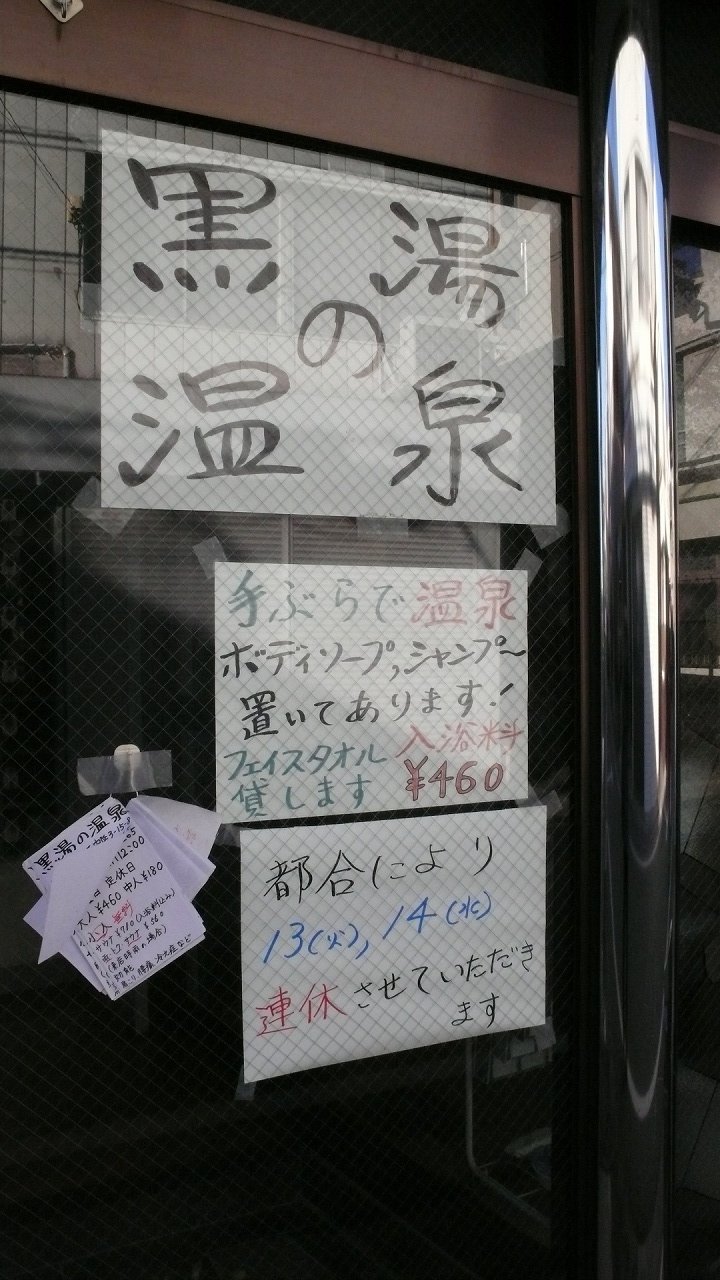 黒湯の温泉
手ぶらで温泉
ボディソープ,シャンプ〜
置いてあります!
フェイスタオル
貸します
入浴料
¥460
都合により
13(火),14(水)
連休させていただき
ます
黒湯の温泉
12:00
定休日
大人¥460 中人¥180